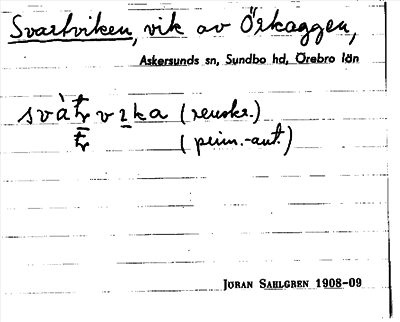 Svartviken, vik av Örkaggen,
Askersunds sn, Sundbo hd, Örebro län
(renskr.)
(prim.-ant.)
JÖRAN SAHLGREN 1908-09